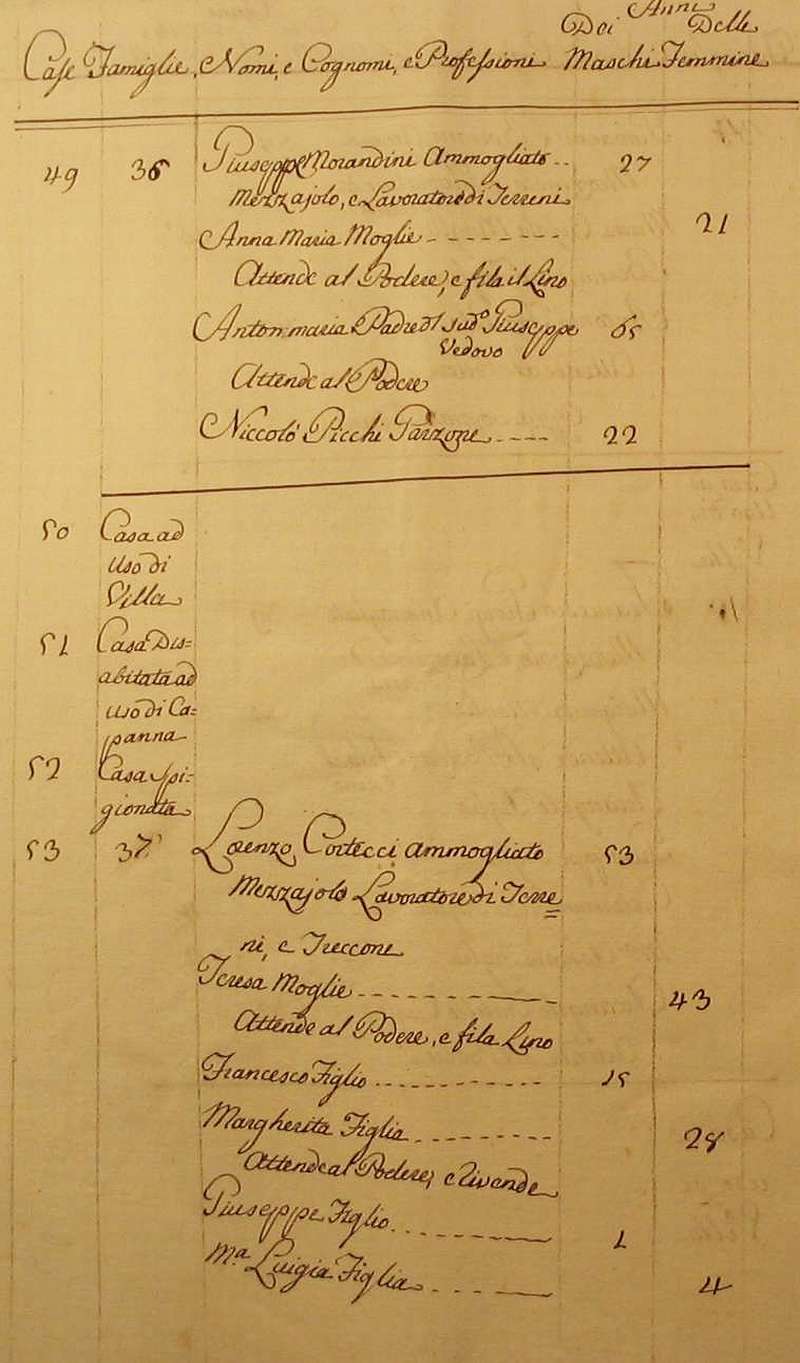 Anni
Dei Delle
Case Famiglie, Nomi, e Cognomi, e Professioni Maschi Femmine
49 36 Giuseppe Morandini Ammogliato 27
Mezzajolo, e Lavoratore di Terreni
Anna Maria Moglie 21
Attende al Podere, e fila il Lino
Anton maria Padre di sud.o Giuseppe 65
Vedovo
Attende al Podere
Niccolò Picchi Garzone 22
50 Casa ad
uso di
Villa
51 Casa Dis=
abitata ad
uso di Ca=
panna
52 Casa spi-
gionata
53 37 Lorenzo Cortecci Ammogliato 53
Mezzajolo Lavoratore di Terre=
ni, e Treccone
Teresa Moglie 43
Attende al Podere, e fila Lino
Francesco Figlio 15
Margherita Figlia 28
Attende al Podere, e
Giuseppe Figlio 1
M.a Luigia Figlia 4